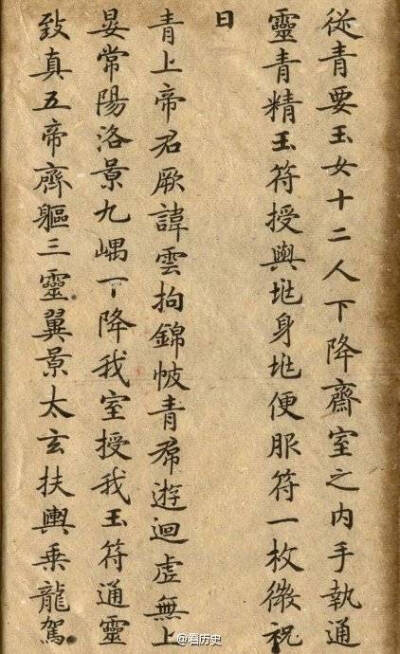 從青要玉女十二人下降齋室之内手執通
靈青精玉符授與兆身兆便服符一枚微祝
曰
青上帝君厥諱雲拘錦帔青帬遊迴虛無上
晏常陽洛景九嵎下降我室授我玉符通靈
致真五帝齊軀三靈翼景太玄扶輿乘龍駕
@看历史